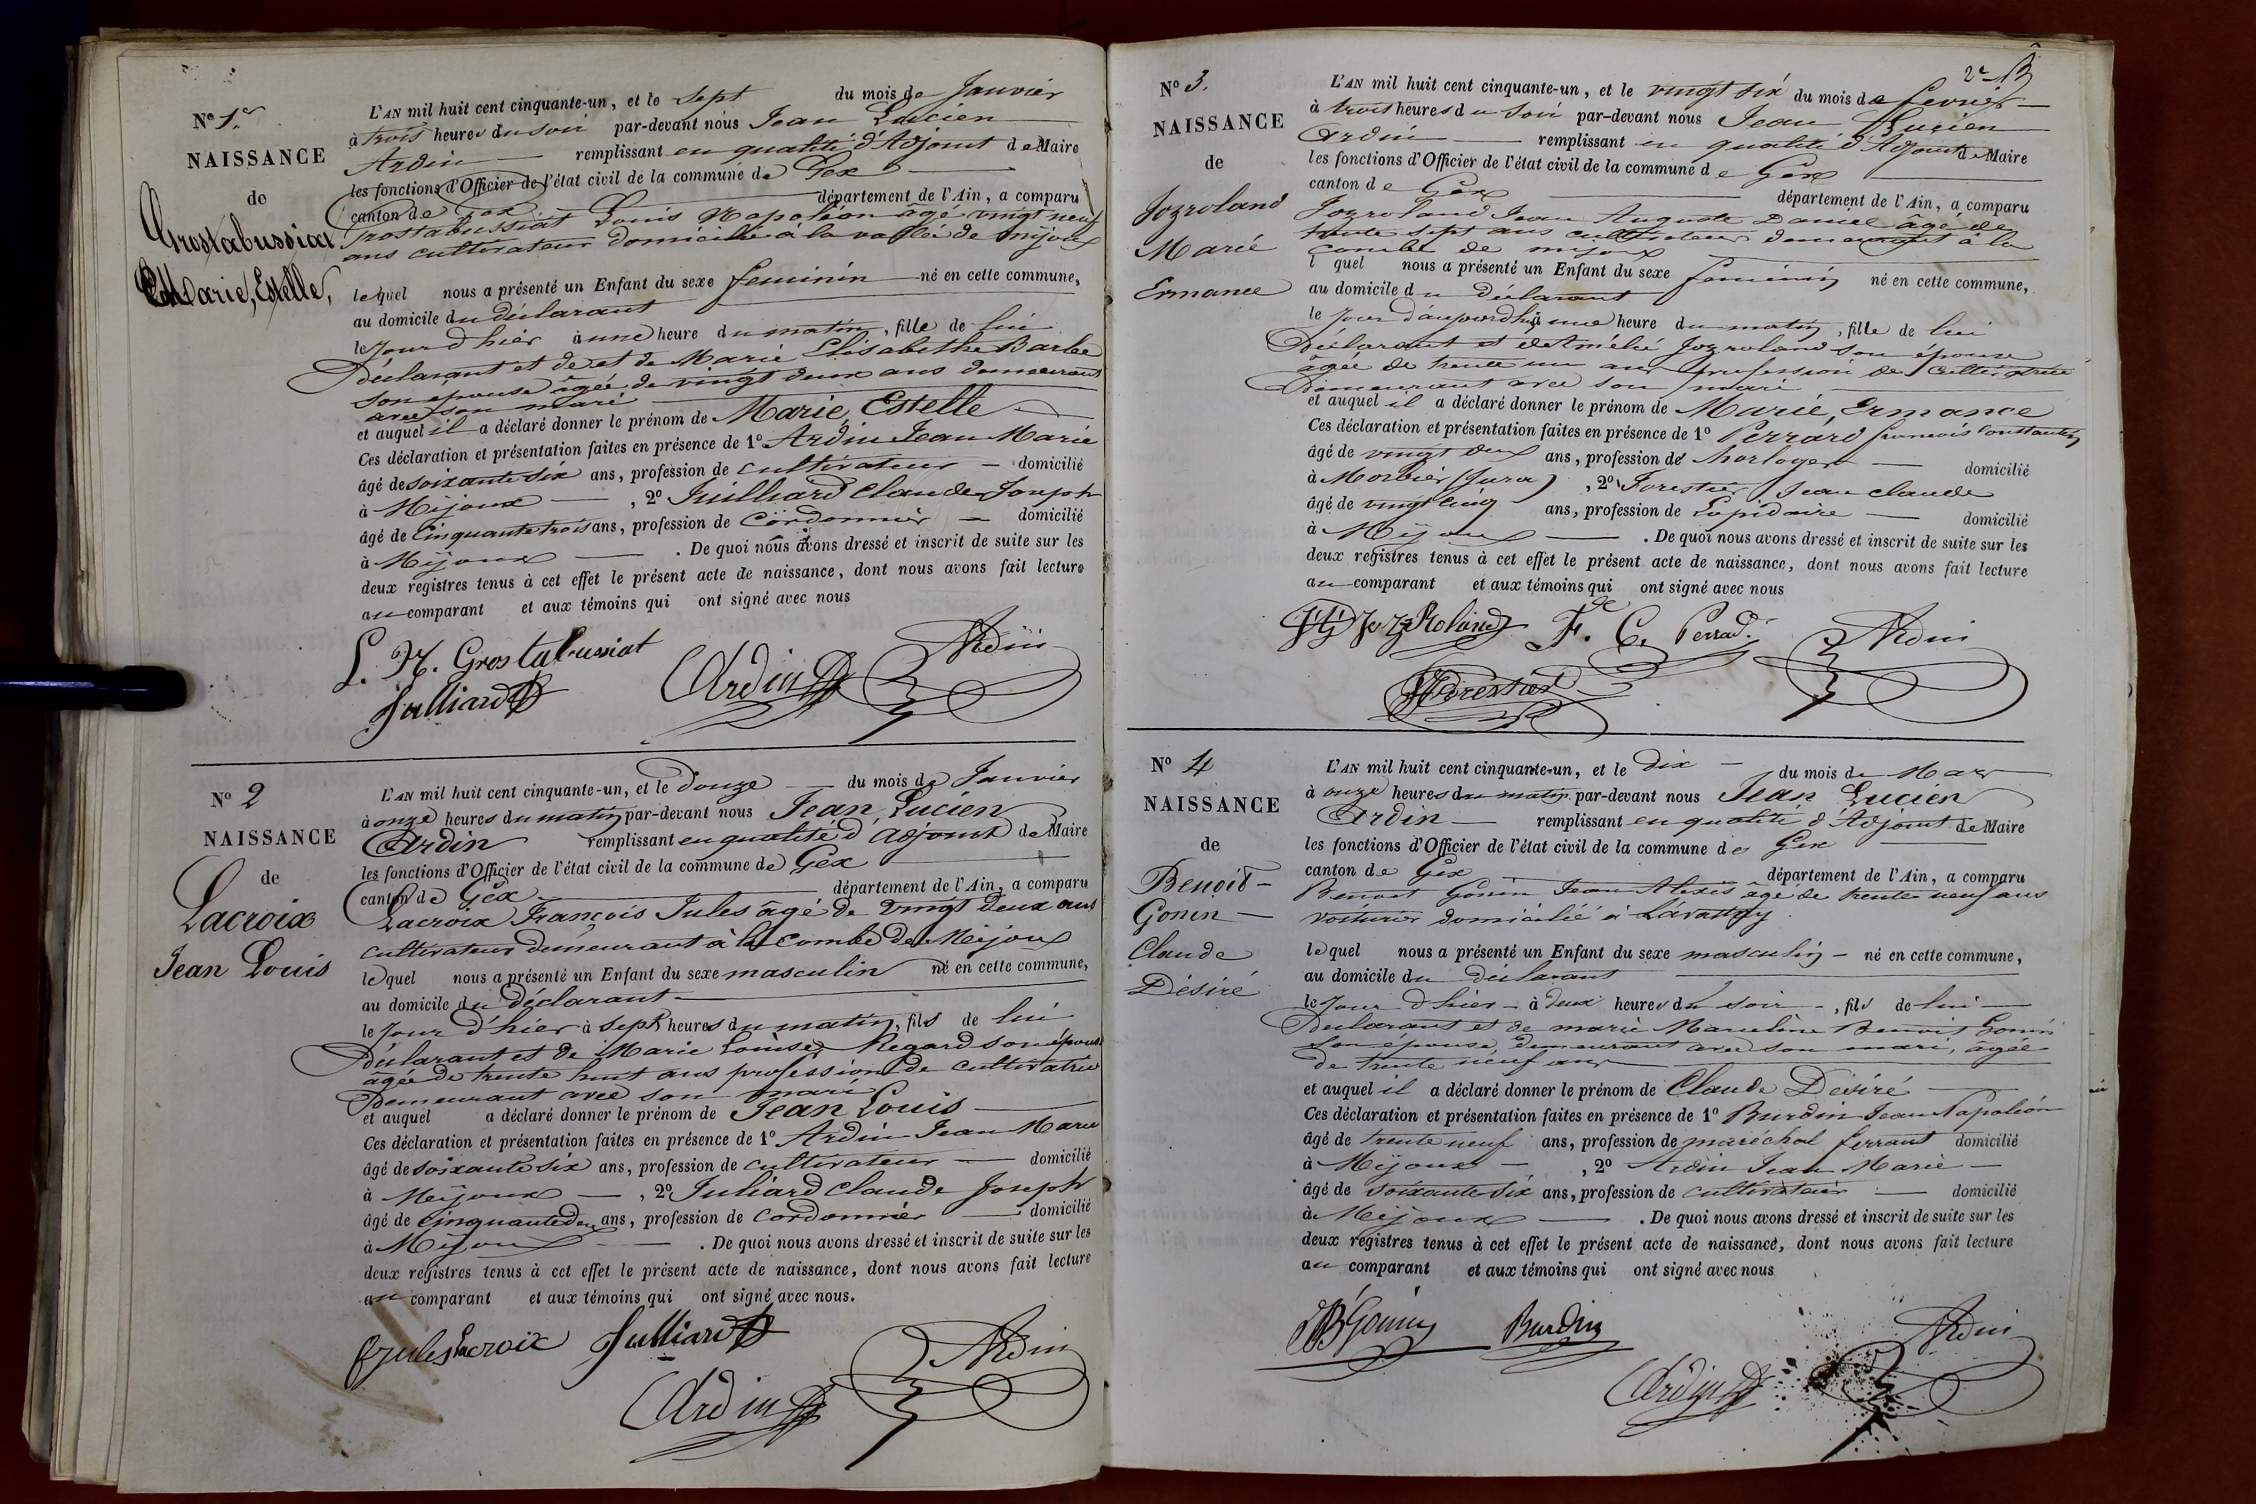 N° 1.er
NAISSANCE
de
Grostabussiat
Marie, Estelle,
L'AN mil huit cent cinquante-un, et le sept du mois de Janvier
à trois heures du soir par-devant nous Jean Lucien
Ardin remplissant en qualité d'Adjoint de Maire
les fonctions d'Officier de l'état civil de la commune de Gex
canton de Gex département de l'Ain, a comparu
Grostabussiat Louis Napoléon agé vingt neuf
ans cultivateur domicilié à la vallée de mijoux
lequel nous a présenté un Enfant du sexe feminin né en cette commune,
au domicile du déclarant
le jour d'hier à une heure du matin, fille de lui
Déclarant et de et de Marie Elisabethe Barbe
son epouse âgée de vingt deux ans demeurant
avec son mari
et auquel il a déclaré donner le prénom de Marie, Estelle
Ces déclaration et présentation faites en présence de 1° Ardin Jean Marie
âgé de soixante six ans, profession de cultivateur domicilié
à Mijoux, 2° Juilliard Claude Joseph
âgé de Cinquante trois ans, profession de Cordonnier domicilié
à Mijoux. De quoi nous avons dressé et inscrit de suite sur les
deux registres tenus à cet effet le présent acte de naissance, dont nous avons fait lecture
au comparant et aux témoins qui ont signé avec nous
L. N. Grostabussiat
Julliard Ardin Ardin
N° 2
NAISSANCE
de
Lacroix
Jean Louis
L'AN mil huit cent cinquante-un, et le douze du mois de Janvier
à onze heures du matin par-devant nous Jean Lucien
Ardin remplissant en qualité d'Adjoint de Maire
les fonctions d'Officier de l'état civil de la commune de Gex
canton de Gex département de l'Ain, a comparu
Lacroix François Jules âgé de vingt deux ans
cultivateur demeurant à la combe de Mijoux
lequel nous a présenté un Enfant du sexe masculin né en cette commune,
au domicile du déclarant
le jour d'hier à sept heures du matin, fils de lui
Déclarant et de Marie Louise Regard son épouse
âgée de trente huit ans profession de cultivatrice
Demeurant avec son mari
et auquel a déclaré donner le prénom de Jean Louis
Ces déclaration et présentation faites en présence de 1° Ardin Jean Marie
âgé de soixante six ans, profession de cultivateur domicilié
à Mijoux, 2° Juliard Claude Joseph
âgé de cinquante deux ans, profession de cordonnier domicilié
à Mijoux. De quoi nous avons dressé et inscrit de suite sur les
deux registres tenus à cet effet le présent acte de naissance, dont nous avons fait lecture
au comparant et aux témoins qui ont signé avec nous.
fr jules Lacroix Julliard
Ardin Ardin
2e
N° 3.
NAISSANCE
de
Jozroland
Marie
Ermance
L'AN mil huit cent cinquante-un, et le vingt six du mois de fevrier
à trois heures du soir par-devant nous Jean Lucien
Ardin remplissant en qualité d'Adjoint de Maire
les fonctions d'Officier de l'état civil de la commune de Gex
canton de Gex département de l'Ain, a comparu
Jozroland Jean Auguste Daniel âgé de
trente sept ans cultivateur demeurant à la
combe de mijoux
l quel nous a présenté un Enfant du sexe feminin né en cette commune,
au domicile du déclarant
le jour d'aujourd'hui à une heure du matin, fille de lui
Déclarant et de Amélie Jozroland son épouse
âgée de trente un ans profession de cultivatrice
Demeurant avec son mari
et auquel il a déclaré donner le prénom de Marie, Ermance
Ces déclaration et présentation faites en présence de 1° Perrard francois Constantin
âgé de vingt deux ans, profession de horloger domicilié
à Morbier (Jura), 2° Forestier Jean Claude
âgé de vingt cinq ans, profession de Lapidaire domicilié
à Mijoux. De quoi nous avons dressé et inscrit de suite sur les
deux registres tenus à cet effet le présent acte de naissance, dont nous avons fait lecture
au comparant et aux témoins qui ont signé avec nous
JozRoland F. C. Perrad. Ardin
Forestier
N° 4
NAISSANCE
de
Benoit-
Gonin
Claude
Désiré
L'AN mil huit cent cinquante-un, et le dix du mois de Mars
à onze heures du matin par-devant nous Jean Lucien
Ardin remplissant en qualité d'Adjoint de Maire
les fonctions d'Officier de l'état civil de la commune de Gex
canton de Gex département de l'Ain, a comparu
Benoit Gonin Jean Alexis âgé de trente neuf ans
voiturier domicilié à
lequel nous a présenté un Enfant du sexe masculin né en cette commune,
au domicile du déclarant
le jour d'hier à deux heures du soir, fils de lui
Déclarant et de marie Marceline Benoit Gonin
son épouse demeurant avec son mari, âgée
de trente neuf ans
et auquel il a déclaré donner le prénom de Claude Désiré
Ces déclaration et présentation faites en présence de 1° Burdin Jean Napoléon
âgé de trente neuf ans, profession de maréchal ferrant domicilié
à Mijoux, 2° Ardin Jean Marie
âgé de soixante six ans, profession de cultivateur domicilié
à Mijoux. De quoi nous avons dressé et inscrit de suite sur les
deux registres tenus à cet effet le présent acte de naissance, dont nous avons fait lecture
au comparant et aux témoins qui ont signé avec nous
Gonin Burdin Ardin
Ardin